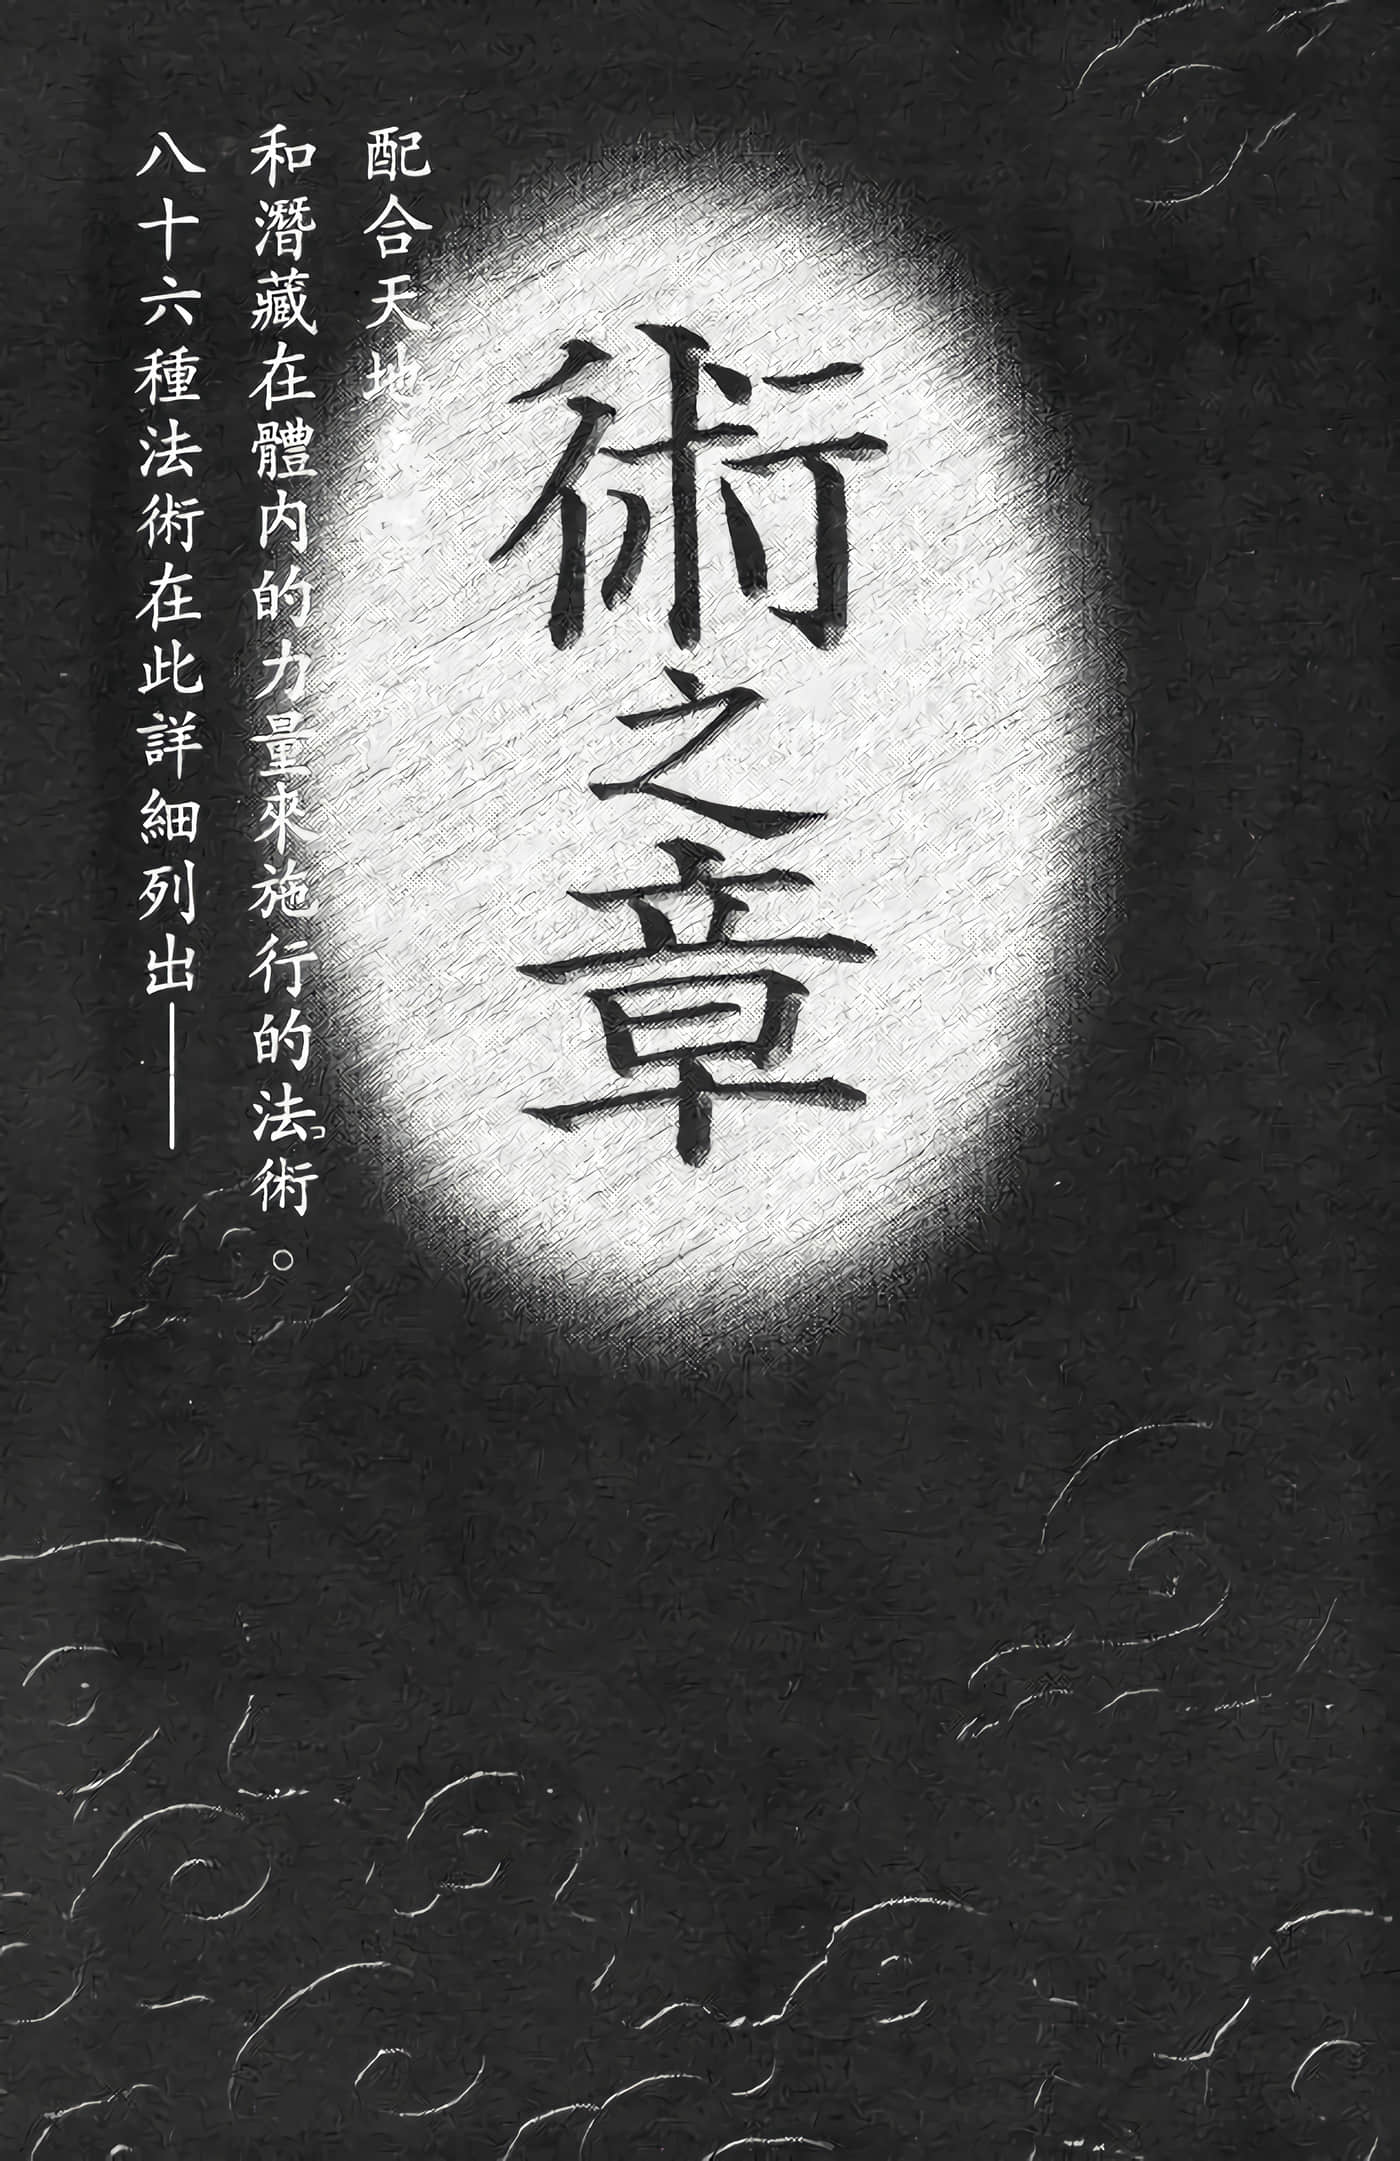 術之章
配合天地
和潛藏在體內的力量來施行的法術。
八十六種法術在此詳細列出——